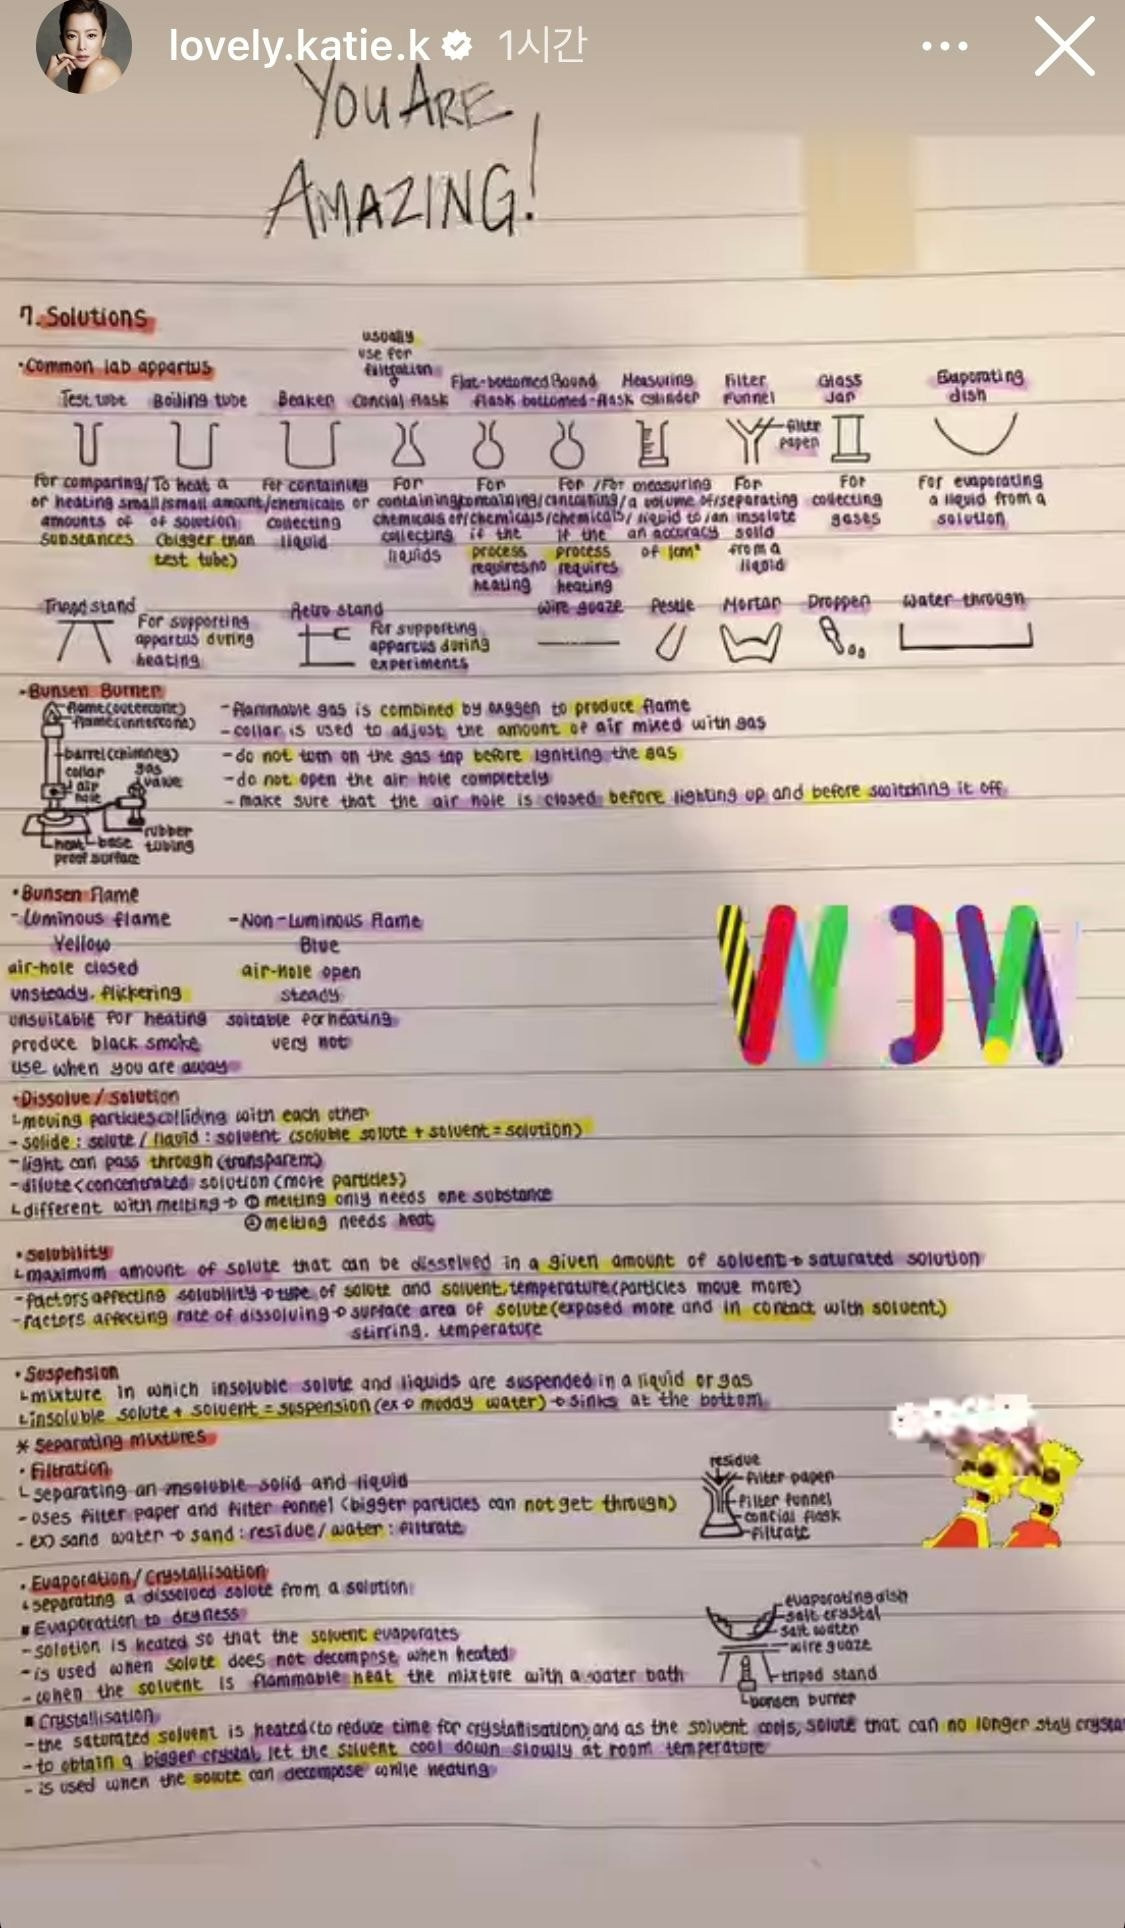 lovely.katie.k 1시간
YOU ARE
AMAZING!
7. Solutions
usually
use for
filtration
·Common lab appartus
Test tube Boiling tube Beaker Concial flask Flat-bottomed flask Round bottomed-flask Measuring cylinder Filter Funnel Glass Jar Evaporating dish
filter paper
For comparing/ or heating small amounts of substances
To heat a small amount of solution (bigger than test tube)
For containing/chemicals or collecting liquid
For containing chemicals or collecting liquids
For containing/chemicals/ if the process requires no heating
For containing/chemicals/ if the process requires heating
For measuring a volume of liquid to an accuracy of 1cm³
For separating an insolute solid from a liquid
For collecting gases
For evaporating a liquid from a solution
Tripod stand
For supporting
appartus during
heating
Retro stand
For supporting
appartus during
experiments
wire guaze Pestle Mortar Dropper Water through
·Bunsen Burner
flame(outercone)
flame(innercone)
barrel(chimney)
collar
air
hole
gas
valve
rubber
tubing
heat
proof surface
base
-flammable gas is combined by oxygen to produce flame
-collar is used to adjust the amount of air mixed with gas
-do not turn on the gas tap before igniting the gas
-do not open the air hole completely
-make sure that the air hole is closed before lighting up and before switching it off
·Bunsen Flame
-Luminous flame -Non-Luminous Flame
Yellow Blue
air-hole closed air-hole open
unsteady, flickering steady
unsuitable for heating suitable for heating
produce black smoke very hot
use when you are away
WOW
·Dissolve / solution
└moving particles colliding with each other
-solide : solute / liquid : solvent (soluble solute + solvent = solution)
-light can pass through (transparent)
-dilute < concentrated solution (more particles)
└different with melting → ① melting only needs one substance
② melting needs heat
·Solubility
└maximum amount of solute that can be dissolved in a given amount of solvent → saturated solution
-factors affecting solubility → type of solute and solvent, temperature (particles move more)
-factors affecting rate of dissolving → surface area of solute (exposed more and in contact with solvent)
stirring, temperature
·Suspension
└mixture in which insoluble solute and liquids are suspended in a liquid or gas
└insoluble solute + solvent = suspension (ex → muddy water) → sinks at the bottom
* Separating mixtures
·Filtration
└separating an insoluble solid and liquid
-uses filter paper and filter funnel (bigger particles can not get through)
-ex) sand water → sand : residue / water : filtrate
residue
filter paper
filter funnel
concial flask
filtrate
·Evaporation / Crystallisation
└separating a dissolved solute from a solution
■ Evaporation to dryness
-solution is heated so that the solvent evaporates
-is used when solute does not decompose when heated
-when the solvent is flammable heat the mixture with a water bath
evaporating dish
salt crystal
salt water
wire guaze
tripod stand
bunsen burner
■ Crystallisation
-the saturated solvent is heated (to reduce time for crystallisation) and as the solvent cools, solute that can no longer stay crysta
-to obtain a bigger crystal, let the solvent cool down slowly at room temperature
-is used when the solute can decompose while heating